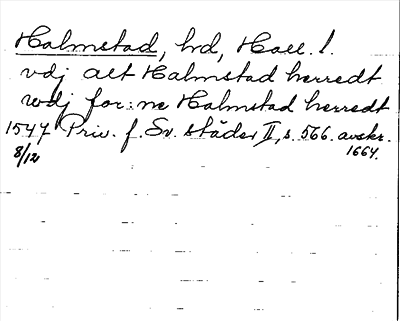 Halmstad, hd, Hall. l.
vdj alt Halmstad herredt
wdj for:ne Halmstad herredt
1547 Priv. f. Sv. städer II, s. 566. avskr.
8/12 1664.